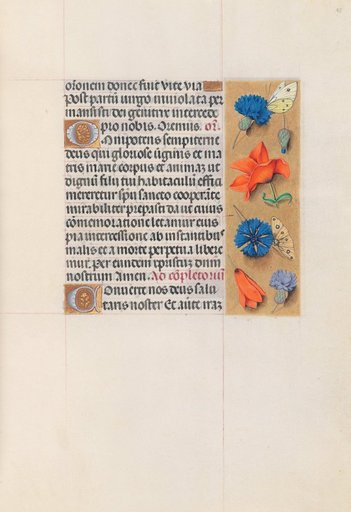 orõnem donec fuit vite via
Post partũ virgo inviolata per
mansisti dei genitrix intercede
pro nobis. Oremus. or.
Omnipotens sempiterne
deus qui gloriose virginis et ma
tris marie corpus et animã ut
dignũ filii tui habitaculũ effici
mereretur spũ sancto cooperãte
mirabiliter preparasti da ut cuius
cõmemoratione letamur eius
pia intercessione ab instantibus
malis et a morte perpetua libere
mur. Per eundem xpũm dñm
nostrum Amen. Ad cõpletoriũ
Converte nos deus salu
taris noster Et averte iraz